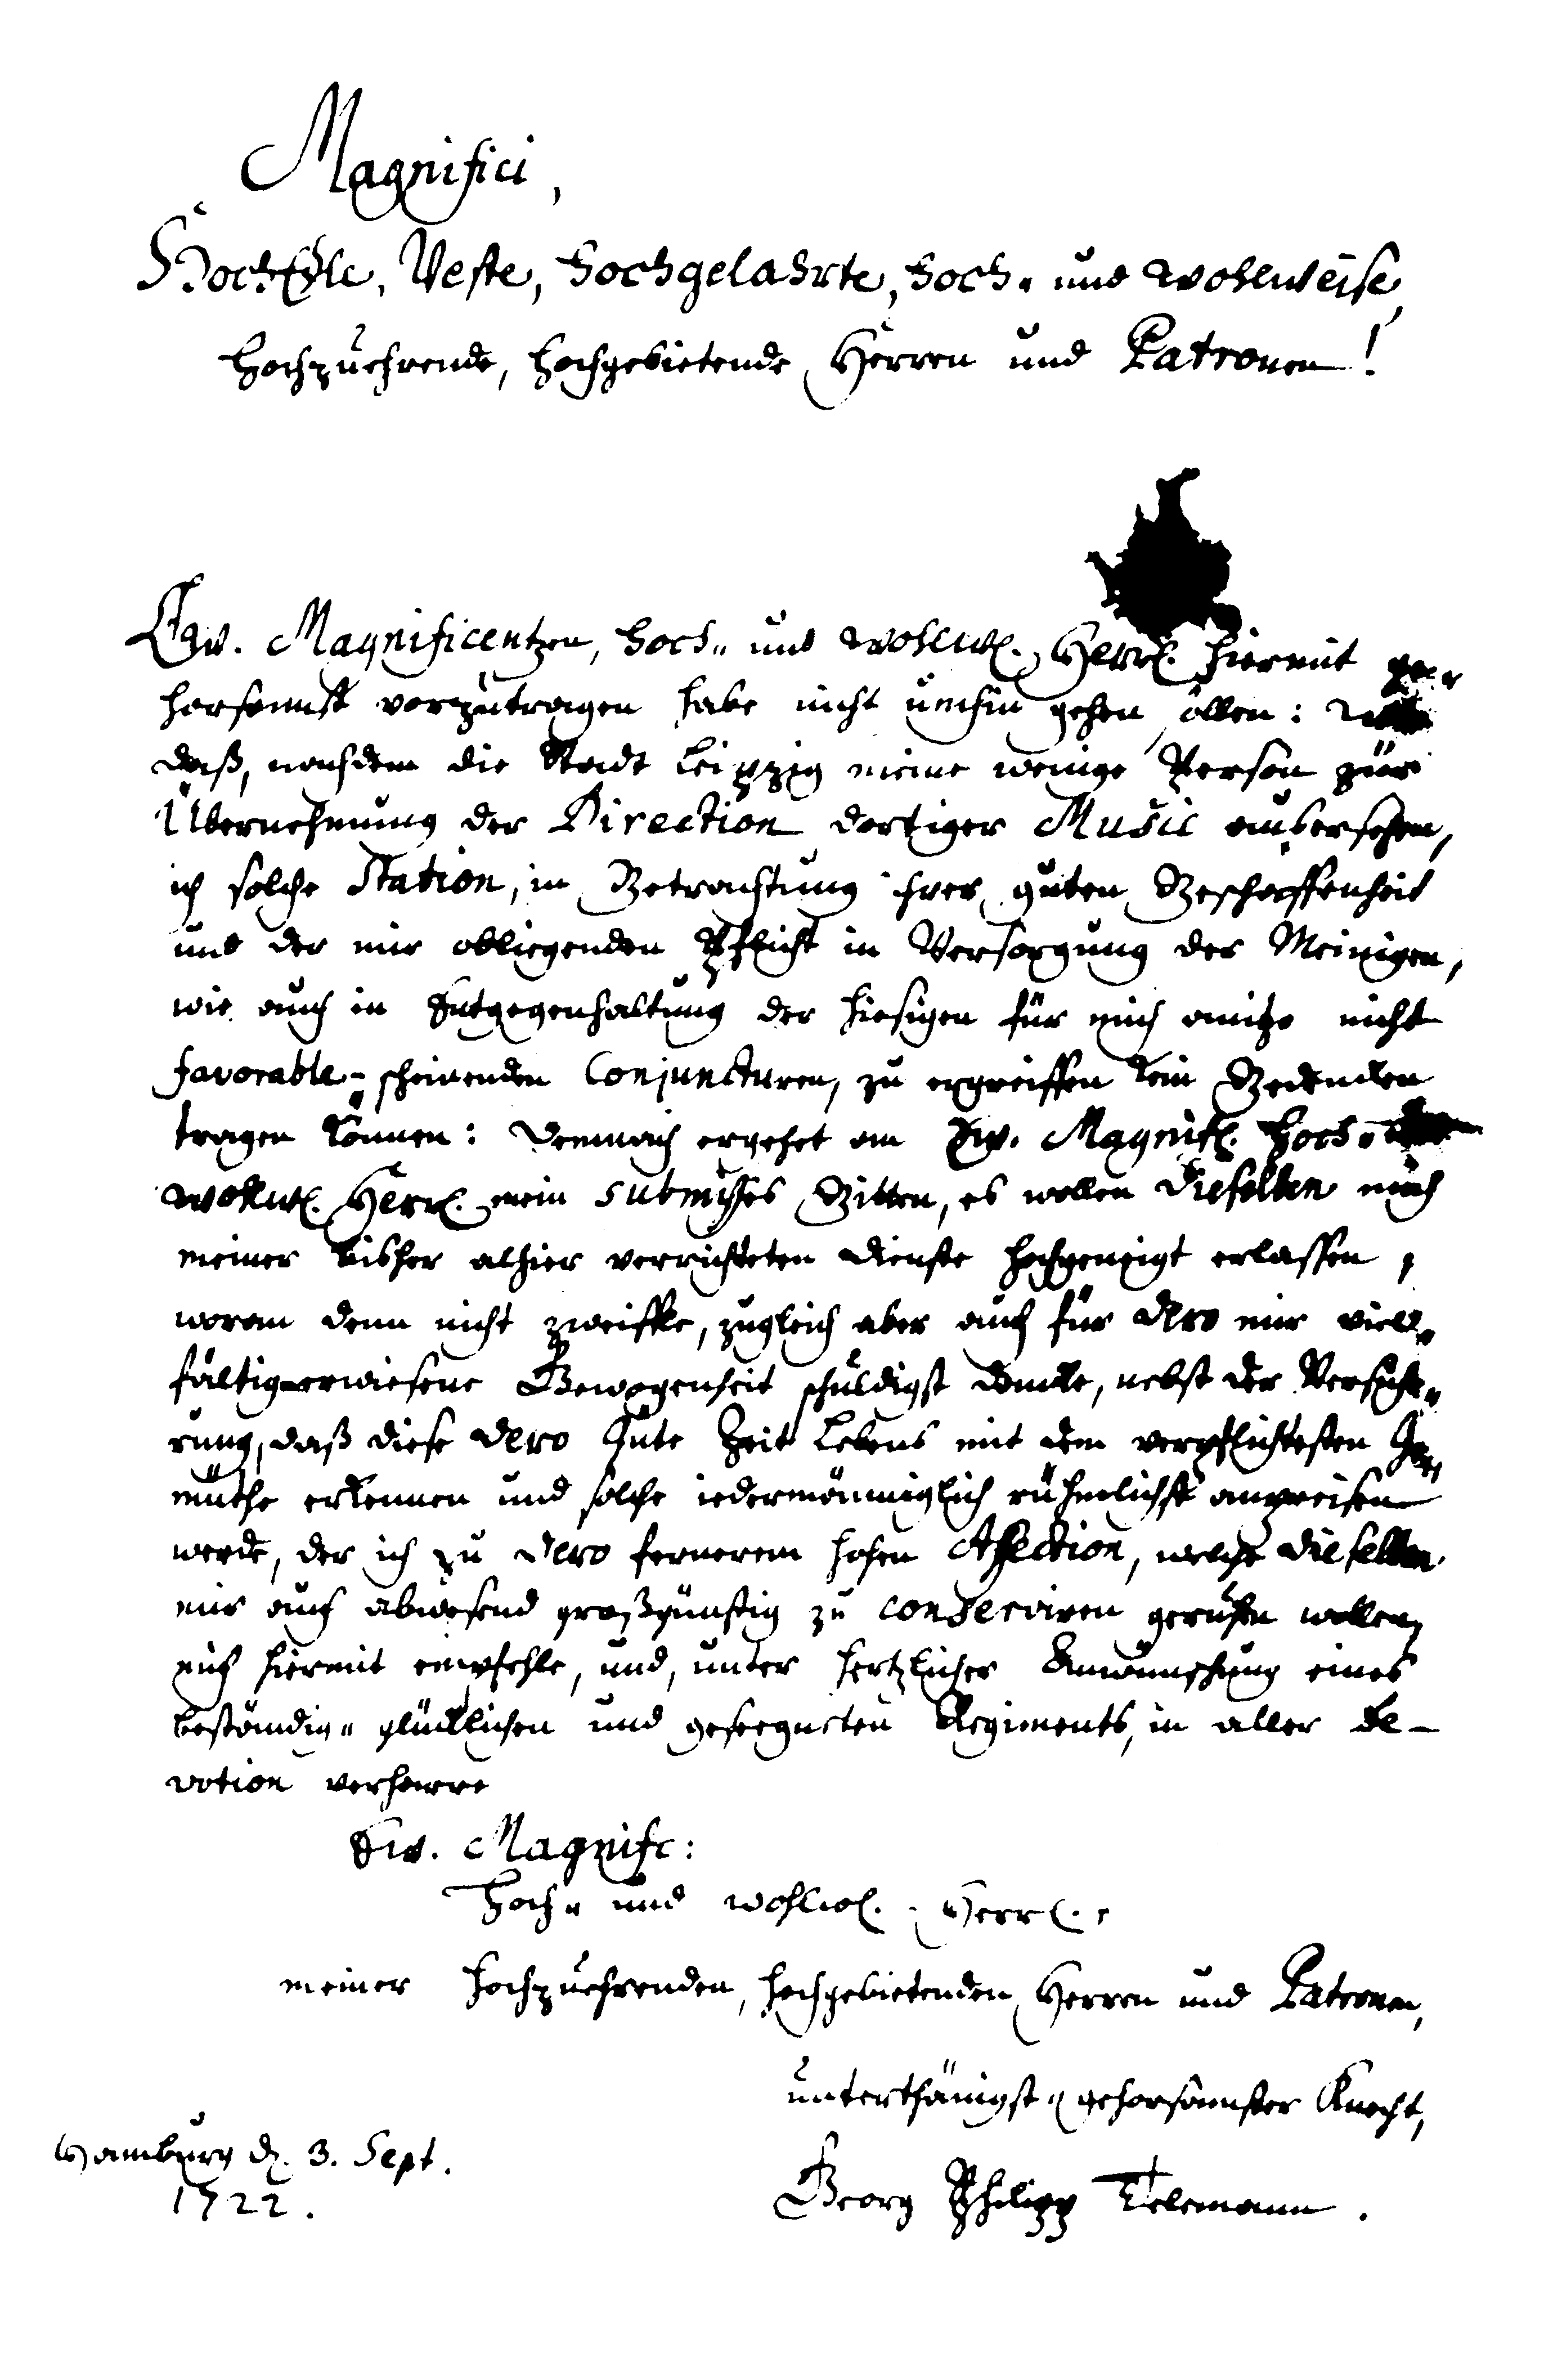 Magnifici,
HochEdle, Veste, Hochgelahrte, Hoch- und Wohlweise
Hochzuehrende, Hochgebietende Herren und Patronen!
Ew. Magnificentzen, Hoch- und Wohlw. Herrl. hiermit ge-
horsamst vorzutragen habe nicht umhin gehen sollen:
daß, nachdem die Stadt Leipzig meine wenige Person zur
Übernehmung der Direction dortiger Music ausersehen,
ich solche Station, in Betrachtung ihrer guten Beschaffenheit
und der mir obliegenden Pflicht in Versorgung der Meinigen,
wie auch in Entgegenhaltung der hiesigen für mich anitzo nicht
favorable-scheinenden Conjuncturen, zu ergreiffen kein Bedencken
tragen können: Demnach ergehet an Ew. Magnif. Hoch-
Wohlw. Herrl. mein submisses Bitten, es wollen Dieselben mich
meiner bisher alhier verrichteten Dienste hochgeneigt erlassen,
woran denn nicht zweiffle, zugleich aber auch für Dero mir viel-
fältig-erwiesene Gewogenheit schuldigst dancke, nebst der Versiche-
rung, daß diese Dero Güte Zeit Lebens mit dem verpflichtesten Ge-
müthe erkennen und solche iedermänniglich rühmlichst anpreisen
werde, der ich zu Dero fernerem hohen Affection, welche Dieselben
mir auch abwesend großgünstig zu conserviren geruhen wollen,
mich hiermit empfehle, und, unter hertzlicher Anwünschung eines
beständig- glücklichen und geseegneten Regiments, in aller De-
votion verharre
Ew. Magnifc:
Hoch- und Wohlw. Herrl.,
meiner Hochzuehrenden, Hochgebietenden Herren und Patronen,
unterthänigst- gehorsamster Knecht,
Hamburg d. 3. Sept.
1722.
Georg Philipp Telemann.